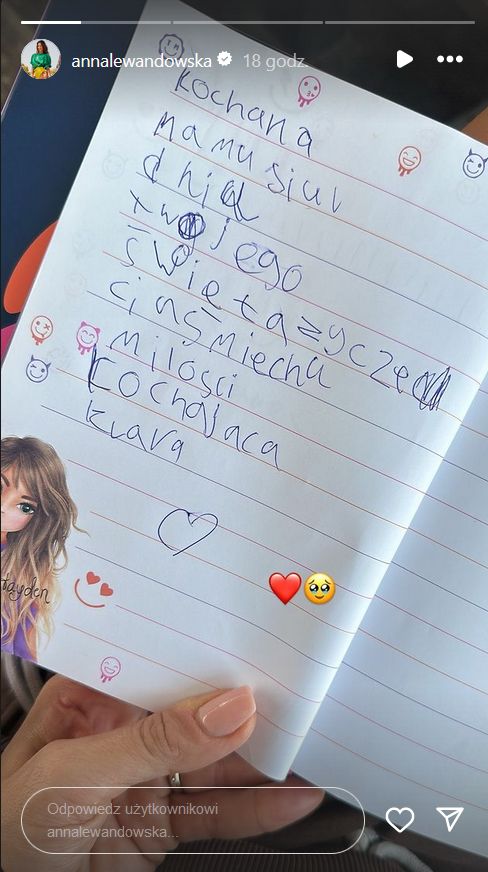 annalewandowska 18 godz.
Kochana
mamusiu
dnia
twojego
święta życzę
ci uśmiecha
miłości
kochająca
Klara
Hayden
Odpowiedz użytkownikowi
annalewandowska...